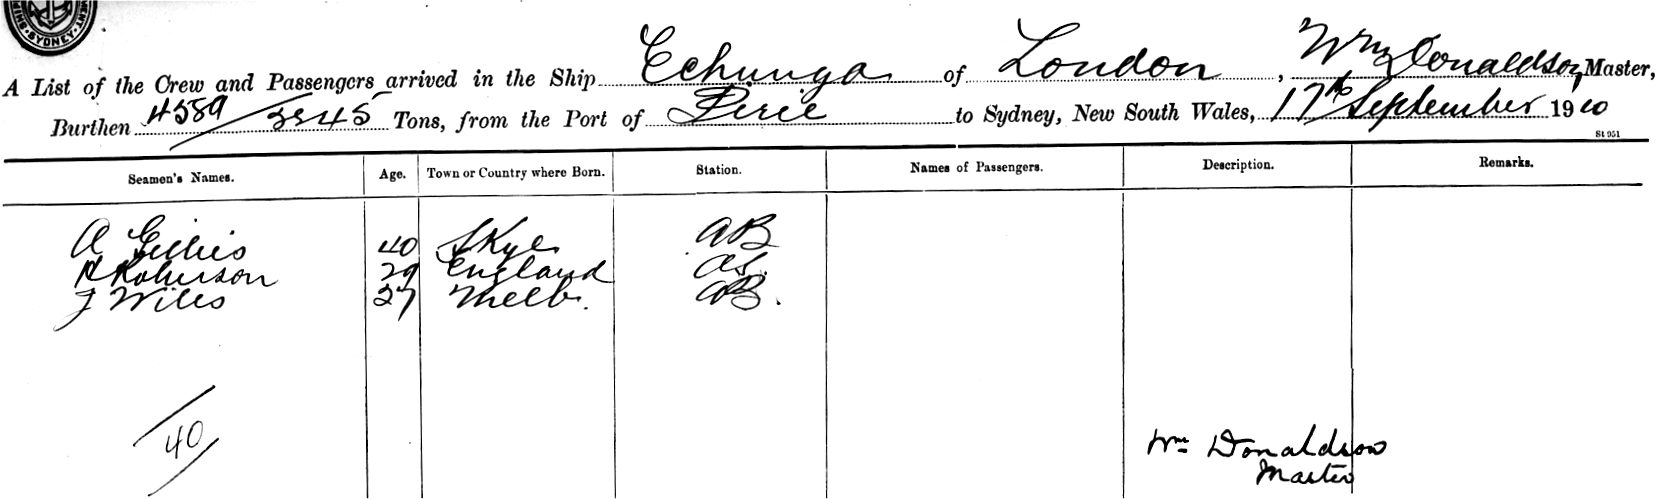 SHIP MENT SYDNEY
A List of the Crew and Passengers arrived in the Ship Echunga of London, Wm Donaldson Master,
Burthen 4589/3545 Tons, from the Port of Pirie to Sydney, New South Wales, 17th September 1910
St 951
Seamen's Names. Age. Town or Country where Born. Station. Names of Passengers. Description. Remarks.
A Gillies 40 Skye AB
H Roberson 29 England AS.
J Wiles 27 Melb. AB.
40
Wm Donaldson
Master